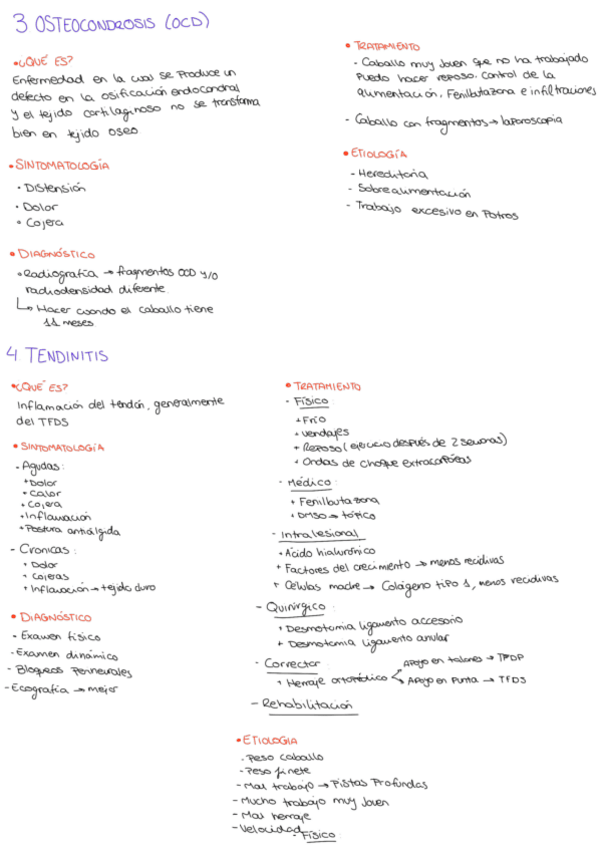 3 OSTEOCONDROSIS (OCD)
• ¿QUÉ ES?
Enfermedad en la cual se produce un
defecto en la osificación endocondral
y el tejido cartilaginoso no se transforma
bien en tejido oseo
• SINTOMATOLOGÍA
• Distensión
• Dolor
• Cojera
• DIAGNÓSTICO
• Radiografía → fragmentos OCD y/o
radiodensidad diferente
↳ Hacer cuando el caballo tiene
11 meses
• TRATAMIENTO
- Caballo muy joven que no ha trabajado
puedo hacer reposo. Control de la
alimentación, Fenilbutazona e infiltraciones
- Caballo con fragmentos → laporoscopia
• ETIOLOGÍA
- Hereditaria
- Sobrealimentación
- Trabajo excesivo en Potros
4 TENDINITIS
• ¿QUÉ ES?
Inflamación del tendón, generalmente
del TFDS
• SINTOMATOLOGÍA
- Agudas:
+ Dolor
+ Calor
+ Cojera
+ Inflamación
+ Postura antiálgida
- Cronicas:
+ Dolor
+ Cojeras
+ Inflamación → tejido duro
• DIAGNÓSTICO
- Examen físico
- Examen dinámico
- Bloqueos Perineurales
- Ecografía → mejor
• TRATAMIENTO
- Físico
+ Frío
+ vendajes
+ Reposo (ejercicio después de 2 semanas)
+ Ondas de choque extracorpóreas
- Médico:
+ Fenilbutazona
+ DMSO → tópico
- Intralesional
+ Ácido hialurónico
+ Factores del crecimiento → menos recidivas
+ Células madre → Colágeno tipo 1, menos recidivas
- Quirúrgico:
+ Desmotomia ligamento accesorio
+ Desmotomia ligamento anular
- Corrector:
+ Herraje ortopédico < Apoyo en talones → TFDP
Apoyo en Punta → TFDS
- Rehabilitación
• ETIOLOGIA
- Peso caballo
- Peso jinete
- Mal trabajo → Pistas Profundas
- Mucho trabajo muy joven
- Mal herraje
- Velocidad
- Físico: